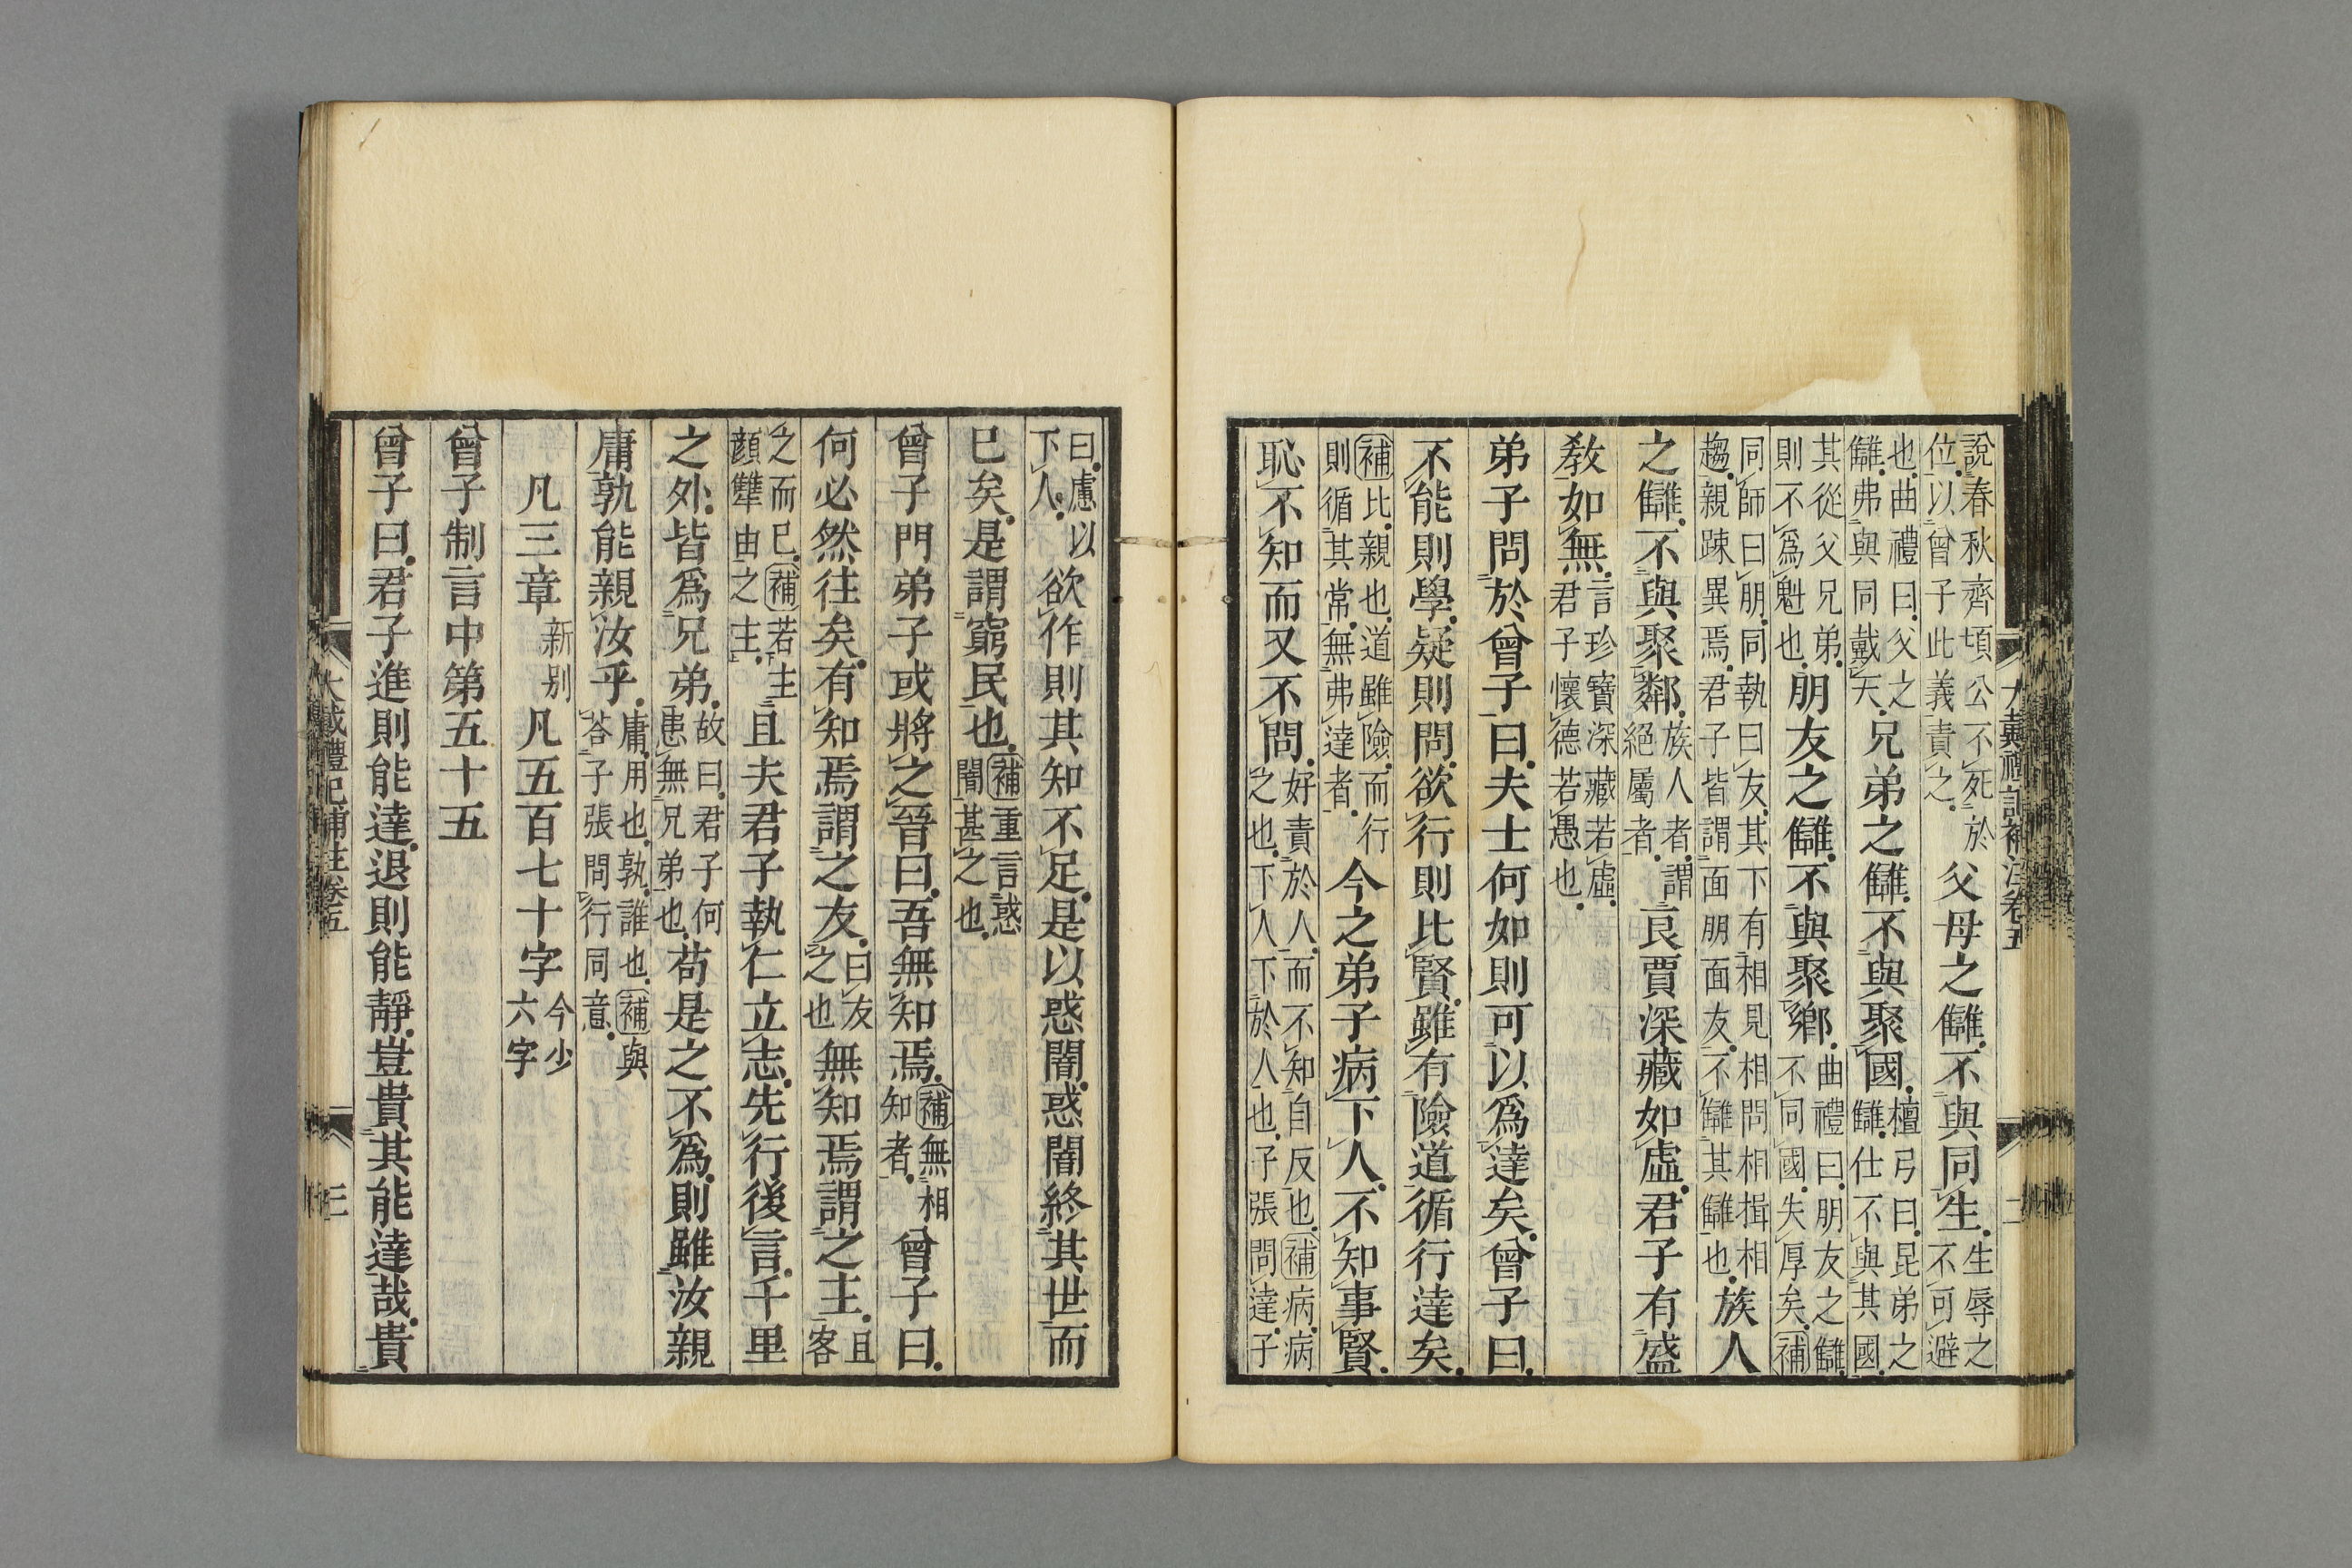 說春秋齊頃公不死於位以曾子此義責之父母之讎不與同生生辱之不可避
也曲禮曰父之讎弗與同戴天兄弟之讎不與聚國檀弓曰昆弟之讎仕不與其國
其從父兄弟則不爲魁也朋友之讎不與聚鄉曲禮曰朋友之讎不同國失厚矣補
同師曰朋同執曰友其下有相見相問相揖相趨親踈異焉君子皆謂面朋面友不讎其讎也族人
之讎不與聚鄰族人者謂絕屬者良賈深藏如虛君子有盛
敎如無言珍寶深藏若虛君子懷德若愚也
弟子問於曾子曰夫士何如則可以爲達矣曾子曰
不能則學疑則問欲行則比賢雖有險道循行達矣
補比親也道雖險而行則循其常無弗達者今之弟子病下人不知事賢
恥不知而又不問好責於人而不知自反也補病病之也下人下於人也子張問達子
曰慮以下人欲作則其知不足是以惑闇惑闇終其世而
已矣是謂窮民也補重言惑闇甚之也
曾子門弟子或將之晉曰吾無知焉補無相知者曾子曰
何必然往矣有知焉謂之友曰友之也無知焉謂之主且客
之而已補若主顔讐由之主且夫君子執仁立志先行後言千里
之外皆爲兄弟故曰君子何患無兄弟也苟是之不爲則雖汝親
庸孰能親汝乎庸用也孰誰也補與荅子張問行同意
凡三章新別凡五百七十字今少六字
曾子制言中第五十五
曾子曰君子進則能達退則能靜豈貴其能達哉貴
大戴禮記補注卷五
三